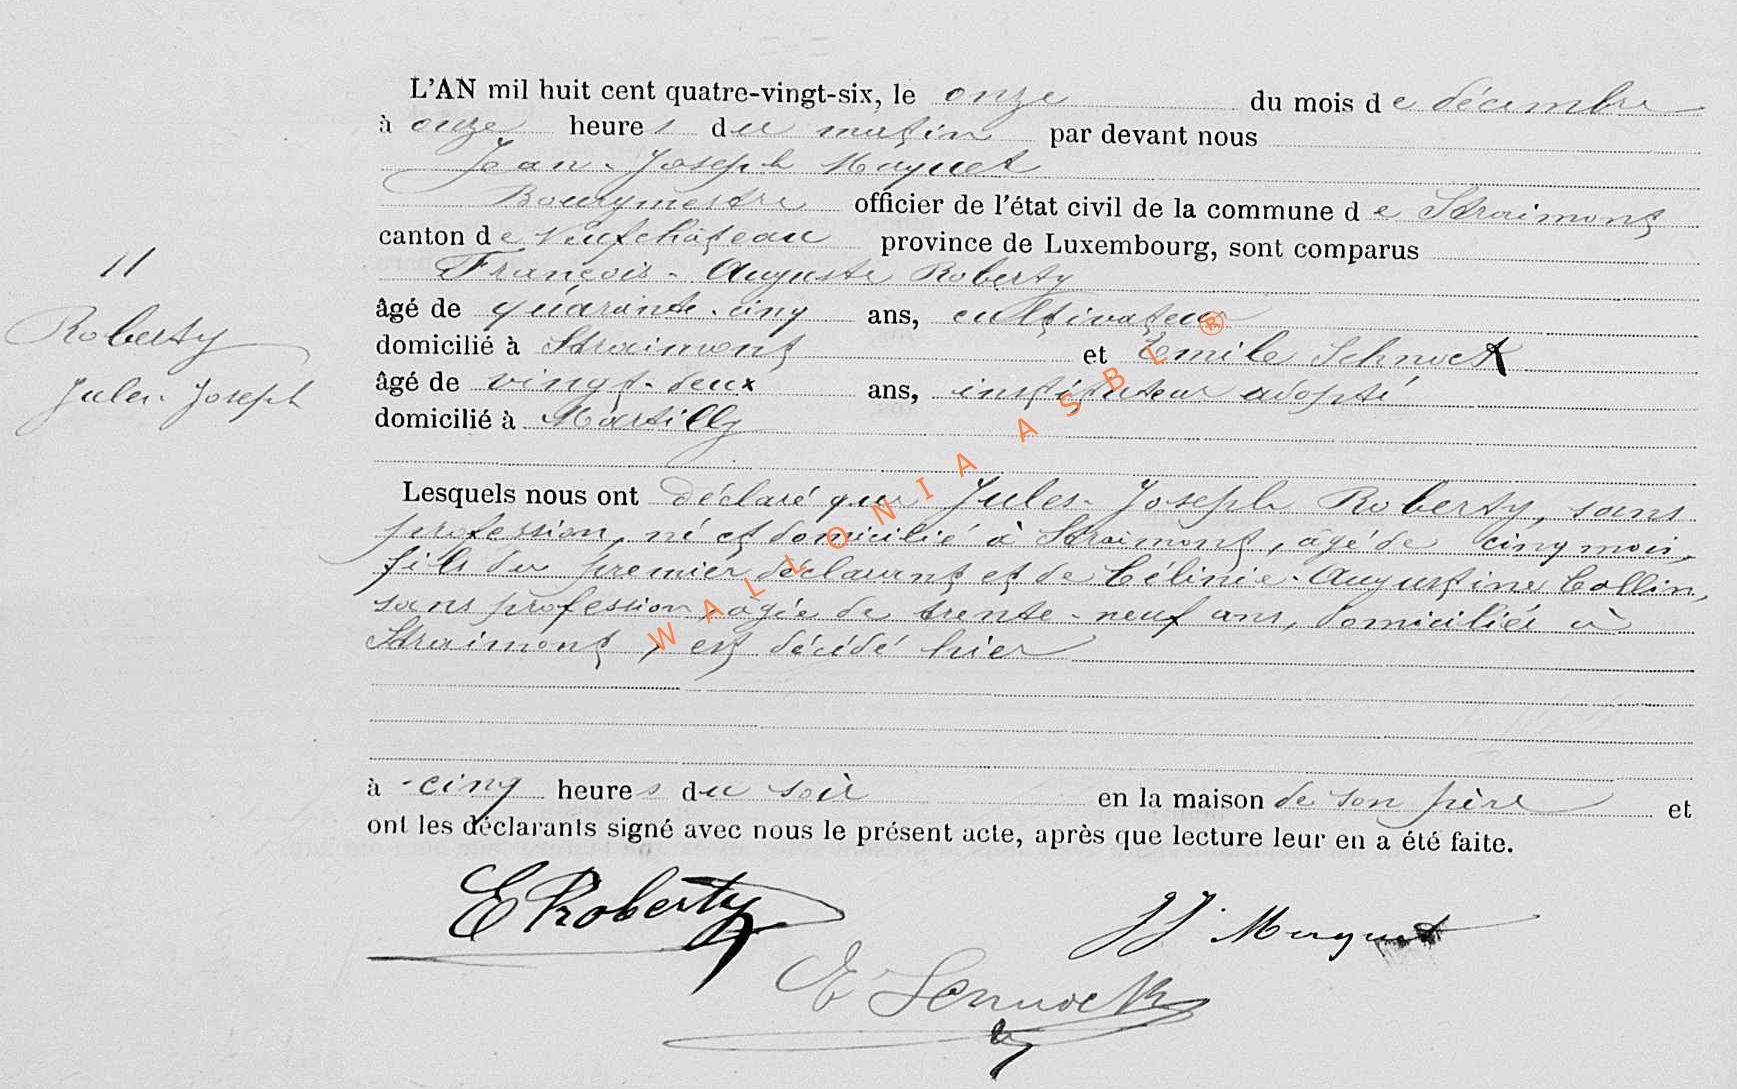 L'AN mil huit cent quatre-vingt-six, le onze du mois de décembre
à onze heures du matin par devant nous
Jean-Joseph Maquet
Bourgmestre officier de l'état civil de la commune de Straimont
canton de Neufchâteau province de Luxembourg, sont comparus
François-Auguste Roberty
âgé de quarante-cinq ans, cultivateur
domicilié à Straimont et Emile Schnock
âgé de vingt-deux ans, instituteur adopté
domicilié à Martilly
11
Roberty
Jules-Joseph
Lesquels nous ont déclaré que Jules-Joseph Roberty, sans
profession, né et domicilié à Straimont, agé de cinq mois,
fils du premier déclarant et de Célinie-Augustine Collin,
sans profession, agée de trente-neuf ans, domiciliés à
Straimont, est décédé hier
à cinq heures du soir en la maison de son père et
ont les déclarants signé avec nous le présent acte, après que lecture leur en a été faite.
E Roberty
JJ. Maquet
E Schnock
WALLONIA ASBL ®